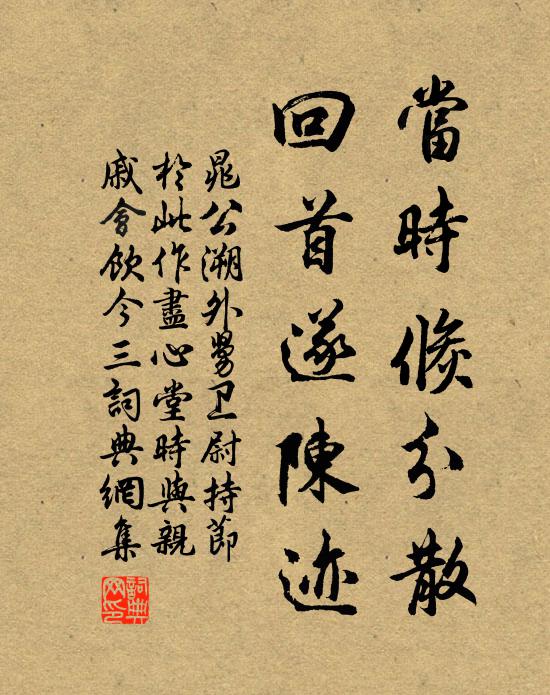 當時倏分散
回首遂陳迹
晁公溯外舅卫尉持節
於此作盡心堂時與親
戚會飲今三詞典網集
詞典网印